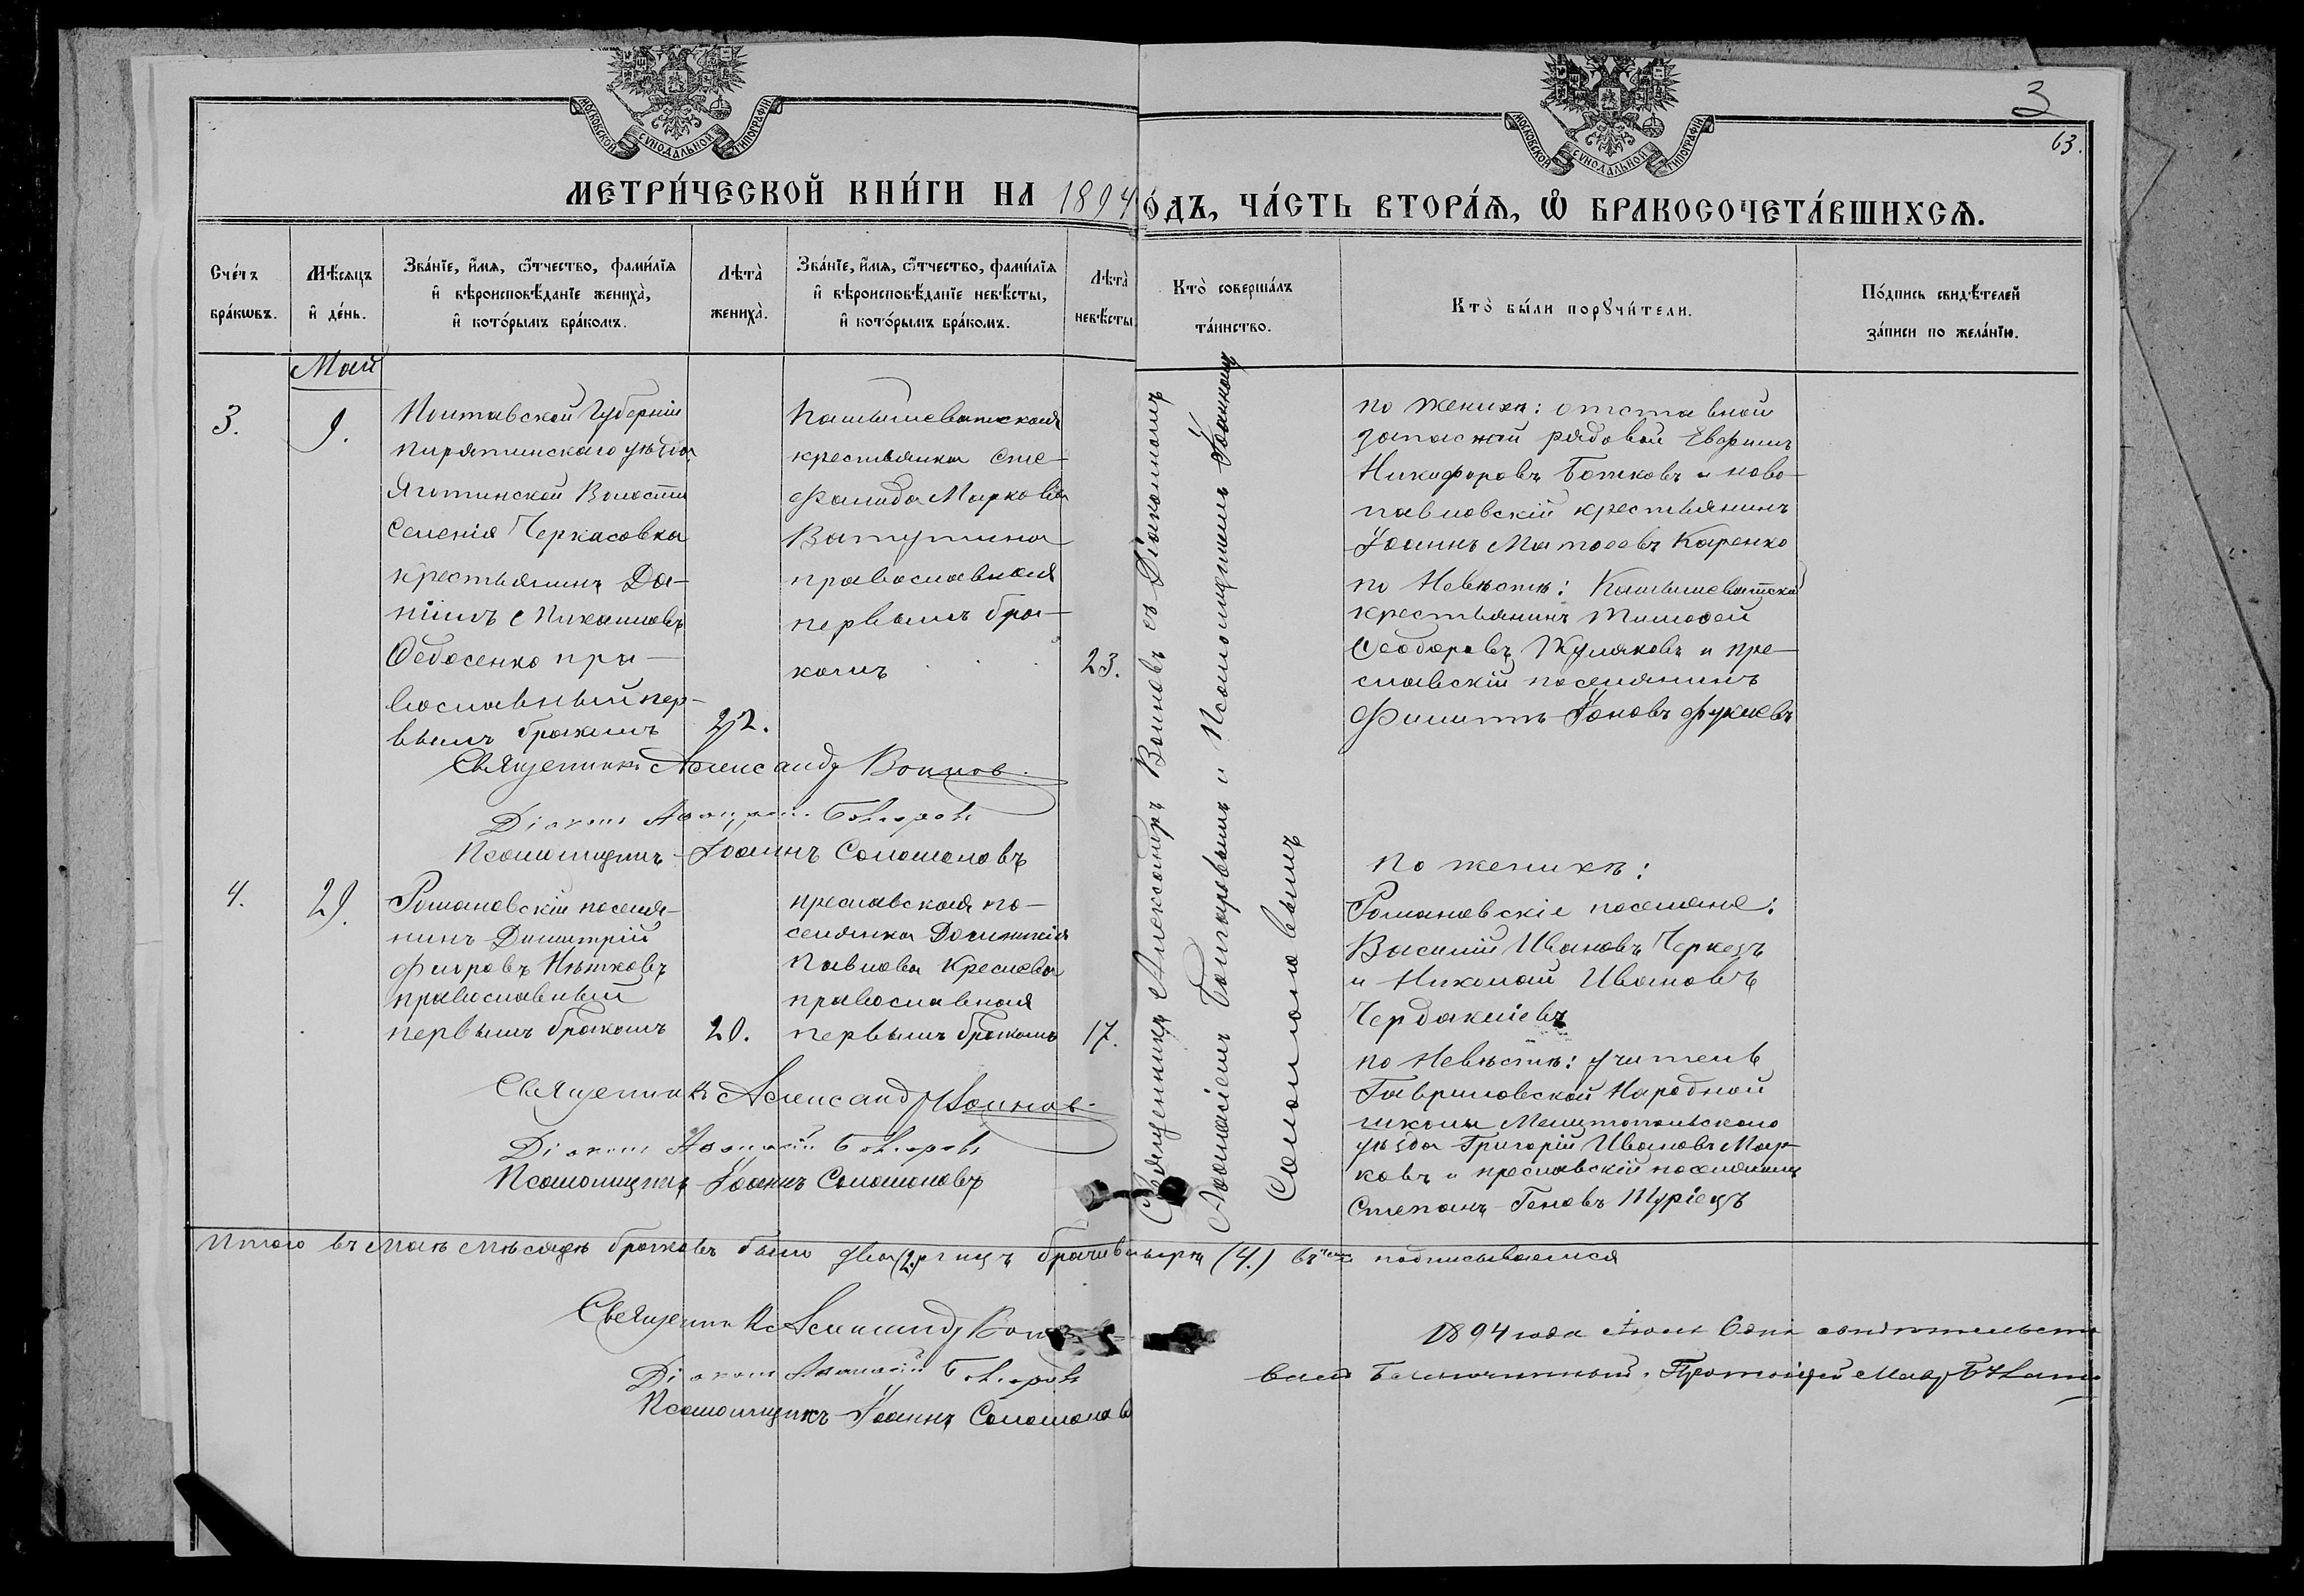 МОСКОВСКОЙ СУНОДАЛЬНОЙ ТИПОГРАФІИ
МОСКОВСКОЙ СУНОДАЛЬНОЙ ТИПОГРАФІИ
3
63.
МЕТРИ́ЧЕСКОЙ КНИ́ГИ НА 1894
О́ДЪ, ЧА́СТЬ ВТОРА́Ѧ, Ѡ҆ БРАКОСОЧЕТА́ВШИХСѦ.
Сче́тъ
бра́кѡвъ.
Мѣ́сяцъ
и҆ де́нь.
Зва́нїе, и҆́мѧ, ѻ҆́тчество, фами́лїѧ
и҆ вѣроисповѣ́данїе жениха̀,
и҆ кото́рымъ бра́комъ.
Лѣта̀
жениха̀.
Зва́нїе, и҆́мѧ, ѻ҆́тчество, фами́лїѧ
и҆ вѣроисповѣ́данїе невѣ́сты,
и҆ кото́рымъ бра́комъ.
Лѣта̀
невѣ́сты
Кто̀ соверша́лъ
та́инство.
Кто̀ бы́ли порꙋчи́тели.
По́дпись свидѣ́телей
за́писи по жела́нїю.
Май
3.
9.
Полтавской Губерніи
Пирятинскаго уѣзда
Яготинской Волости
Селенія Черкасовка
крестьянинъ Да-
ніилъ
Ѳедосенко пра-
вославный пер-
вымъ бракомъ
22.
крестьянка Сте-
фанида Маркова
Ватутина
православная
первымъ бра-
комъ
23.
Священникъ Александръ Воиновъ съ Діакономъ
Аѳанасіемъ Болгаровымъ и Псаломщикомъ Іоанномъ
Соломоновымъ
по женихѣ: отставной
запасной рядовой Евфимъ
Никифоровъ Божковъ и ново-
павловскій крестьянинъ
Іоаннъ Матѳеевъ Каренко
по Невѣстѣ:
крестьянинъ Тимоѳей
Ѳеодоровъ Жуляковъ и пре-
славскій поселянинъ
Филиппъ Іоновъ
Священникъ Александръ Воинов
Діаконъ Аѳанасій Болгаровъ
Псаломщикъ Іоаннъ Соломоновъ
4.
29.
Романовскій поселя-
нинъ Димитрій
Нѣтковъ
православный
первымъ бракомъ
20.
преславская по-
селянка Доминикія
Павлова Креслева
православная
первымъ бракомъ
17.
по женихѣ:
Романовскіе поселяне:
Василій Ивановъ Черкезъ
и Николай Ивановъ
Чердакліевъ
по Невѣстѣ: учитель
Гавриловской Народной
школы Мелитопольскаго
уѣзда Григорій Ивановъ Мар-
ковъ и преславскій поселянинъ
Степанъ Геновъ
Священникъ Александръ Воинов
Діаконъ Аѳанасій Болгаровъ
Псаломщикъ Іоаннъ Соломоновъ
Итого въ Маѣ мѣсяцѣ браковъ было два (2.) (4.) въ чемъ подписываемся
Священникъ Александръ
Діаконъ Аѳанасій Болгаровъ
Псаломщикъ Іоаннъ Соломонов
1894 года дня свидѣтельство-
валъ Благочинный, Протоіерей